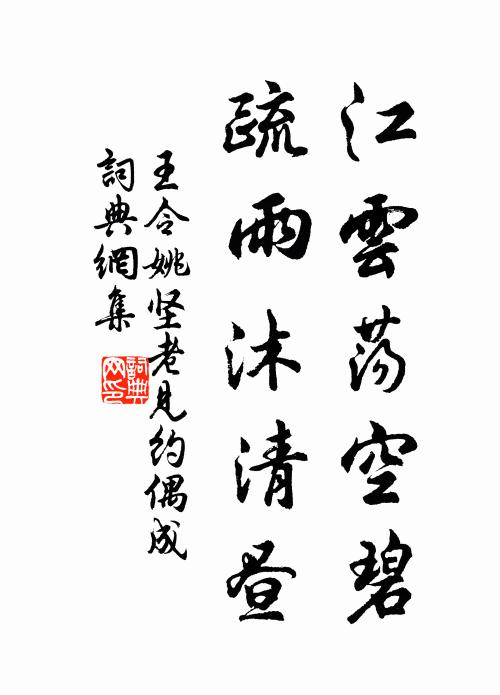 江雲蕩空碧
疏雨沐清昼
王令姚坚老見約偶成
詞典網集
詞典网印